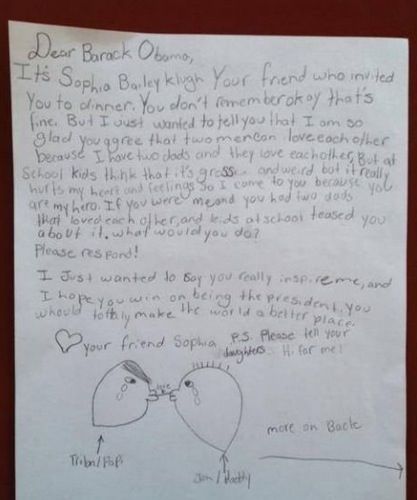 Dear Barack Obama,
It's Sophia Bailey klugh Your friend who invited
You to dinner. You don't remember okay that's
fine. But I Just wanted to tell you that I am so
glad you agree that two men can love each other
because I have two dads and they love each other. But at
School kids think that it's gross and weird but it really
hurts my heart and feelings. So I come to you because you
are my hero. If you were me and you had two dads
that loved each other, and kids at school teased you
about it. what would you do?
Please respond!
I Just wanted to say you really inspire me, and
I hope you win on being the president. you
whould totally make the world a better place.
your friend Sophia P.S. Please tell your
daughters Hi for me!
love
more on Back
/Papi
/Daddy